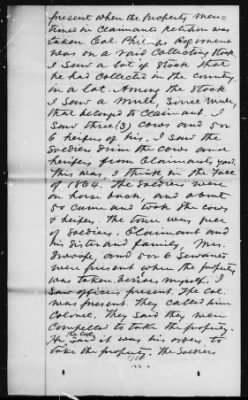 present when the property men-
tioned in claimants petition was
taken. Col. Regiment
was on a raid collecting stock
I saw a lot of stock that
he had collected in the country
in a lot. Among the stock
I saw a mule, mule,
that belonged to claimant. I
saw three (3) cows and 5 or
6 heifers of his. I saw the
soldiers drive the cows and
heifers from claimants yard.
This was, I think in the
of 1864. The soldiers were
on horse back, and about
50 came and took the cows
& heifers. The town was
of soldiers. Claimant and
his sister and family, Mrs.
and 5 or 6 servants
were present when the property
was taken, besides myself. I
saw officers present. The Col.
was present. They called him
Colonel. They said they were
compelled to take the property.
He, the Col. said it was his orders to
take the property. The soldiers